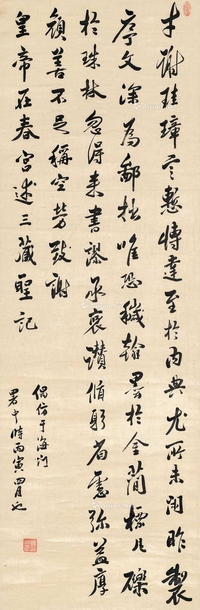 才謝珪璋言慙博達至於內典尤所未閑昨製
序文深為鄙拙唯恐穢翰墨於金簡標瓦礫
於珠林忽得來書謬承褒讚脩躬省慮彌益厚
顏善不足稱空勞致謝
皇帝在春宮述三藏聖記
偶仿于海門
署中時丙寅四月也